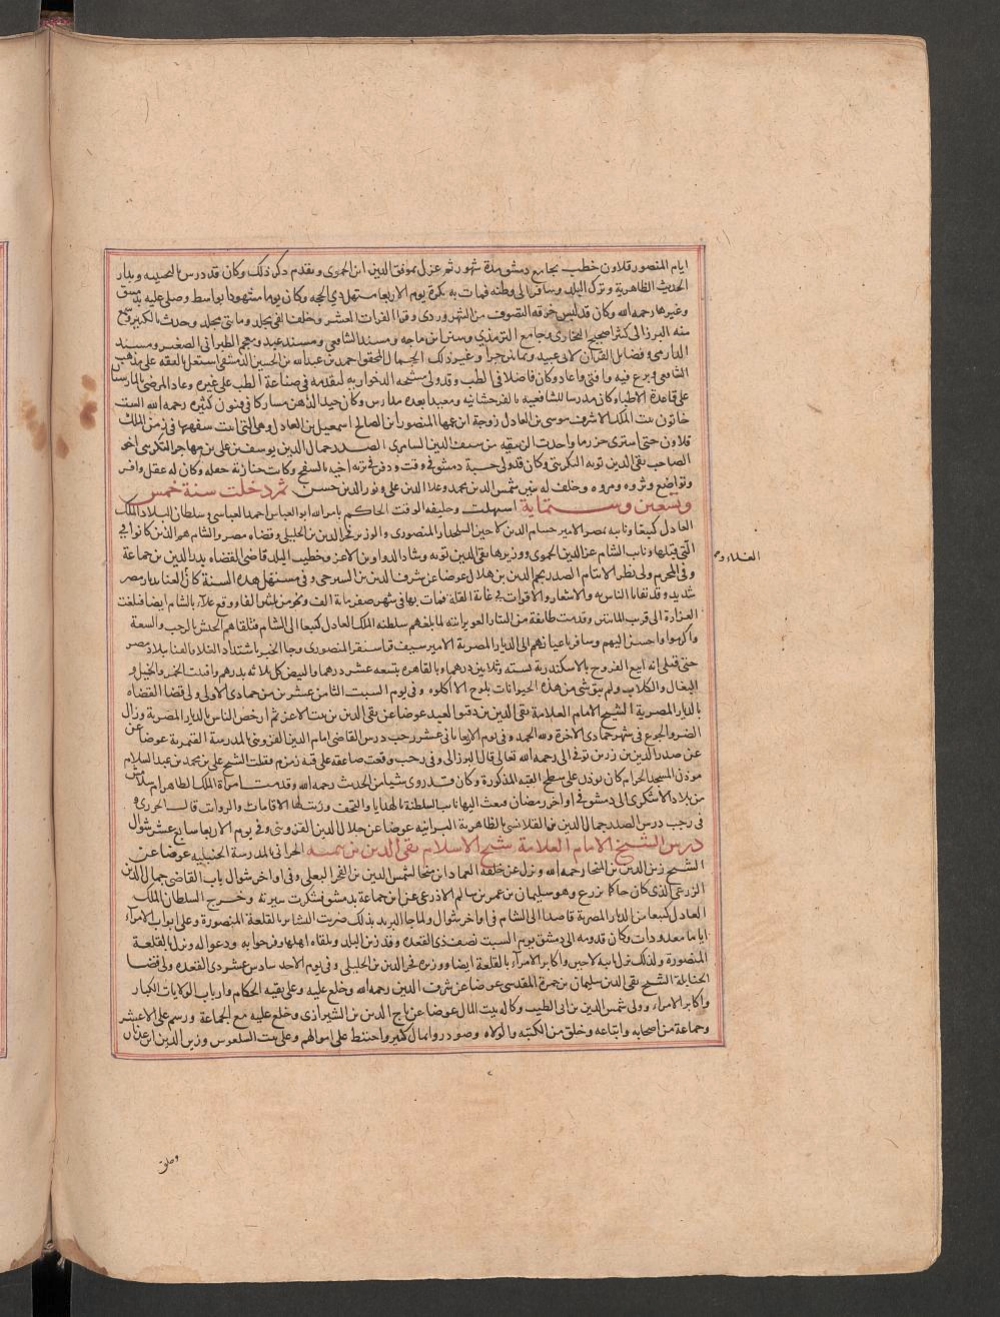 ايام المنصور قلاون خطب بجامع دمشق مدة شهور ثم عزل بموفق الدين ابن الحموي وتقدم ذكر ذلك وكان قد درس بالنجيبيه وبدار
الحديث الظاهرية وترك البلد وسافر الى وطنه فمات به بكرة يوم الاربعا مستهل ذي الحجه وكان يوما مشهودا بواسط وصلى عليه بدمشق
وغيرها رحمه الله وكان قد لبس خرقه التصوف من السهروردي وقرا القرات العشر وخلف الفي مجلد ومايتي مجلد وحدث بالكثير وسمع
منه البرزالي كثيرا صحيح البخاري وجامع الترمذي وسنن ابن ماجه ومسند الشافعي ومسند عبد ومعجم الطبراني الصغير ومسند
الدارمي وفضايل القرآن لابي عبيد وثمانين جزأ وغير ذلك الجمال المحقق احمد بن عبد الله بن الحسين الدمشقي اشتغل بالفقه على مذهب
الشافعي وبرع فيه وافتى واعاد وكان فاضلا في الطب وقد ولي مشيخه الدخواريه لتقدمه في صناعة الطب على غيره وعاد المرضى بالمارستان
على قاعدة الاطباء وكان مدرسا للشافعيه بالفرخشانيه ومعيدا بعده مدارس وكان جيد الذهن مشاركا في فنون كثيره رحمه الله الست
خاتون بنت الملك الاشرف موسى بن العادل زوجة ابن عمها المنصور ابن الصالح اسمعيل بن العادل وهي التي اثبت سفهها في زمن الملك
قلاون حتى اشترى حزرما واخذت الزنبقيه من سيف الدين السامري الصدر جمال الدين يوسف بن علي بن مهاجر التكريتي اخو
الصاحب تقي الدين توبه التكريتي وكان قد ولي حسبة دمشق في وقت ودفن في تربه اخيه بالسفح وكانت جنازته حفله وكان له عقل وافر
وتواضع وثروه ومروه وخلف له بنين شمس الدين محمد وعلا الدين علي ونور الدين حسن ثم دخلت سنة خمس
وتسعين وستماية استهلت وخليفه الوقت الحاكم بامر الله ابو العباس احمد العباسي وسلطان البلاد الملك
العادل كتبغا ونايبه بمصر الامير حسام الدين لاجين السلحدار المنصوري والوزير فخر الدين بن الخليلي وقضاه مصر والشام هم الذين كانوا في
التي قبلها ونايب الشام عز الدين الحموي ووزيرها تقي الدين توبه وشاد الدواوين الاعسر وخطيب البلد قاضي القضاه بدر الدين بن جماعة
وفي المحرم ولي نظر الايتام الصدر نجم الدين بن هلال عوضا عن شرف الدين بن الشيرجي وفي مستهل هذه السنة كان الغلا بديار مصر
شديد وقد تفانا الناس به والاسعار والاقوات في غاية القلة فمات بها في شهر صفر ماية الف ونحو من ثلثين الفا ووقع غلاء بالشام ايضا فبلغت
الغرارة الى قرب المايتين وقدمت طايفة من التتار العويراتيه لما بلغهم سلطنه الملك العادل كتبغا الى الشام فتلقاهم الجيش بالرحب والسعة
واكرموا واحسن اليهم وسافر باعيانهم الى الديار المصرية الامير سيف قراسنقر المنصوري وجا الخبر باشتداد الغلا والفنا ببلاد مصر
حتى قيل انه ابيع الفروج بالاسكندرية بسته وثلاثين درهما وبالقاهره بتسعه عشر درهما والبيض كل ثلاثه بدرهم وافنيت الحمر والخيل و
البغال والكلاب ولم يبق شي من هذه الحيوانات يلوح الا اكلوه وفي يوم السبت الثامن عشرين من جمادى الاولى ولي قضا القضاه
بالديار المصرية الشيخ الامام العلامة تقي الدين بن دقيق العيد عوضا عن تقي الدين بن بنت الاعز ثم ارخص الناس بالديار المصرية وزال
الضر والجوع في شهر جمادى الاخرة ولله الحمد وفي يوم الاربعا ثاني عشر رجب درس القاضي امام الدين القزويني بالمدرسة القيمرية عوضا عن
عن صدر الدين بن رزين توفي الى رحمه الله تعالى قال البرزالي وفي رجب وقعت صاعقه على قبة زمزم فقتلت الشيخ علي بن محمد بن عبد السلام
موذن المسجد الحرام كان يوذن على سطح القبه المذكورة وكان قد روى شيا من الحديث رحمه الله وقدمت امرأة الملك الظاهر ام سلامش
من بلاد الاشكري الى دمشق في اواخر رمضان وبعث اليها نايب السلطنة بالهدايا والتحف ورتبت لها الاقامات والرواتب قال الجزري
في رجب درس الصدر جمال الدين بن القلانسي بالظاهرية البرانيه عوضا عن جلال الدين القزويني وفي يوم الاربعا سابع عشر شوال
درس الشيخ الامام العلامة شيخ الاسلام تقي الدين بن تيميه الحراني بالمدرسة الحنبليه عوضا عن
الشيخ زين الدين بن المنجا رحمه الله ونزل عن حلقه العماد ابن منجا لشمس الدين بن الفخر البعلي وفي اواخر شوال ناب القاضي جمال الدين
الزرعي الذي كان حاكما بزرع وهو سليمان بن عمر بن سالم الاذرعي عن ابن جماعة بدمشق فشكرت سيرته وخرج السلطان الملك
العادل كتبغا من الديار المصرية قاصدا الى الشام في اواخر شوال ولما جا البريد بذلك ضربت البشاير بالقلعة المنصورة وعلى ابواب الامراء
اياما معدودات وكان قدومه الى دمشق يوم السبت نصف ذي القعده وقد زين البلد وتلقاه اهلها وفرحوا به ودعوا له ونزل بالقلعة
المنصورة وكذلك نزل نايبه لاجين واكابر الامراء بالقلعة ايضا ووزيره فخر الدين بن الخليلي وفي يوم الاحد سادس عشر ذي القعده ولي قضا
الحنابلة الشيخ تقي الدين سليمان بن حمزة المقدسي عوضا عن شرف الدين رحمه الله وخلع عليه وعلى بقيه الحكام وارباب الولايات الكبار
واكابر الامراء وولي شمس الدين بن ابي الطيب وكاله بيت المال عوضا عن تاج الدين بن الشيرازي وخلع عليه مع الجماعة ورسم على الاعسر
وجماعة من اصحابه واتباعه وخلق من الكتبه والولاه وصودروا بمال كثير واحتيط على اموالهم وعلى بنت السلعوس وزين الدين ابن عدنان
وخلق